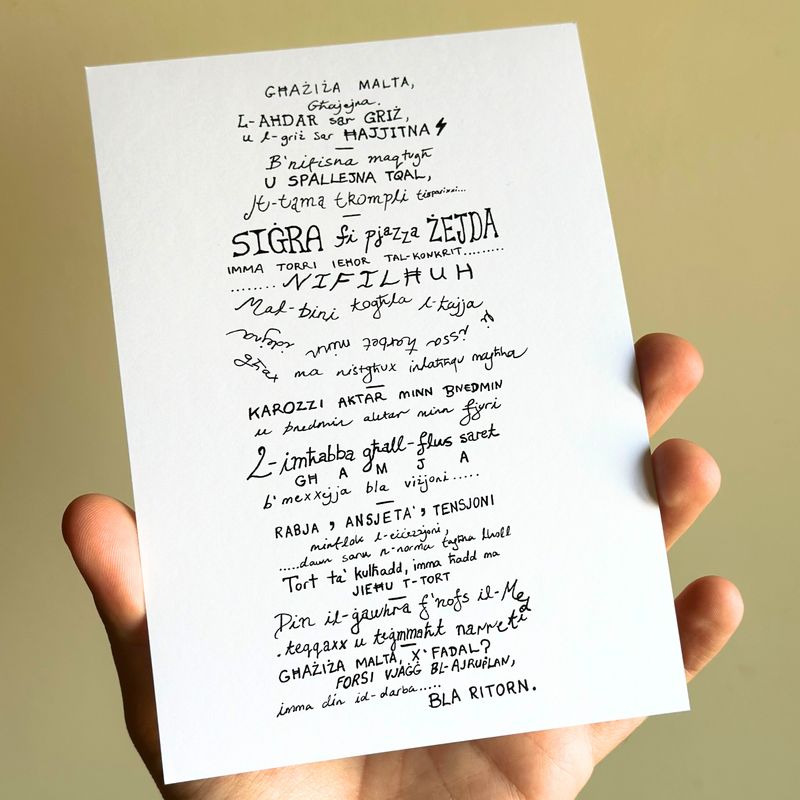 GĦAŻIŻA MALTA,
Għajejna.
L-AĦDAR sar GRIŻ,
u l-griż sar ĦAJJITNA
B'nifisna maqtugħ
U SPALLEJNA TQAL,
It-tama tkompli tisparixxi...
SIĠRA fi pjazza ŻEJDA
IMMA TORRI IEĦOR TAL-KONKRIT.........
........NIFILĦUH
Mal-bini togħla l-ħajja
minn idejna
għax ma nistgħux inlaħħqu magħha
KAROZZI AKTAR MINN BNEDMIN
u bnedmin aktar minn fjuri
L-imħabba għall-flus saret
GĦAMJA
b'mexxejja bla viżjoni.....
RABJA, ANSJETA', TENSJONI
minflok l-eċċezzjoni,
.....dawn saru n-norma tagħna lkoll
Tort ta' kulħadd, imma ħadd ma
JIEĦU T-TORT
Din il-ġawhra f'nofs il-Med
.teqqaxx u tiġmmaħt narrnetti
GĦAŻIŻA MALTA, X'FADAL?
FORSI VJAĠĠ BL-AJRUPLAN,
imma din id-darba.....
BLA RITORN.